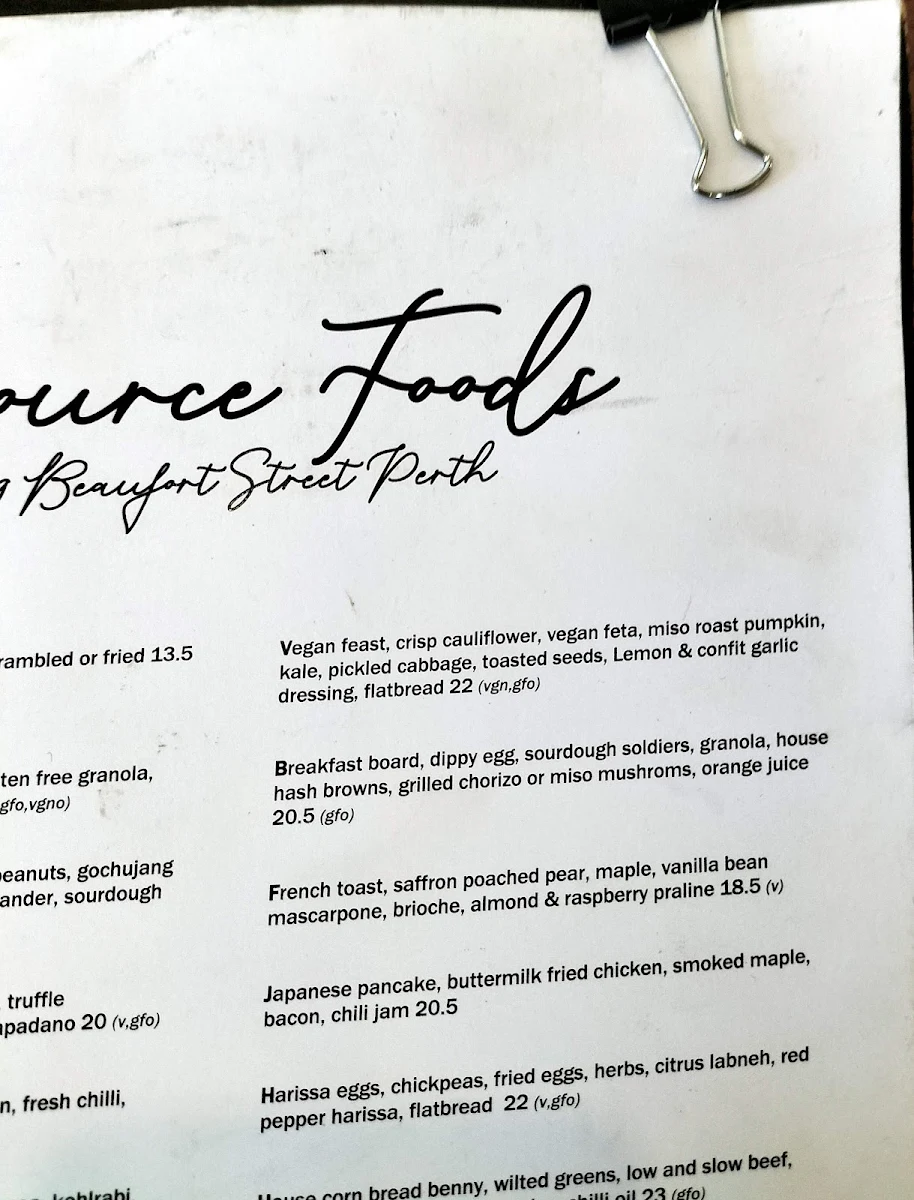 Foods
Beaufort Street Perth
or fried 13.5
free granola,
gfo,vgno)
gochujang
sourdough
truffle
20 (v,gfo)
fresh chilli,
kohlrabi
Vegan feast, crisp cauliflower, vegan feta, miso roast pumpkin,
kale, pickled cabbage, toasted seeds, Lemon & confit garlic
dressing, flatbread 22 (vgn,gfo)
Breakfast board, dippy egg, sourdough soldiers, granola, house
hash browns, grilled chorizo or miso mushroms, orange juice
20.5 (gfo)
French toast, saffron poached pear, maple, vanilla bean
mascarpone, brioche, almond & raspberry praline 18.5 (v)
Japanese pancake, buttermilk fried chicken, smoked maple,
bacon, chili jam 20.5
Harissa eggs, chickpeas, fried eggs, herbs, citrus labneh, red
pepper harissa, flatbread 22 (v,gfo)
House corn bread benny, wilted greens, low and slow beef,
chilli oil 23 (gfo)